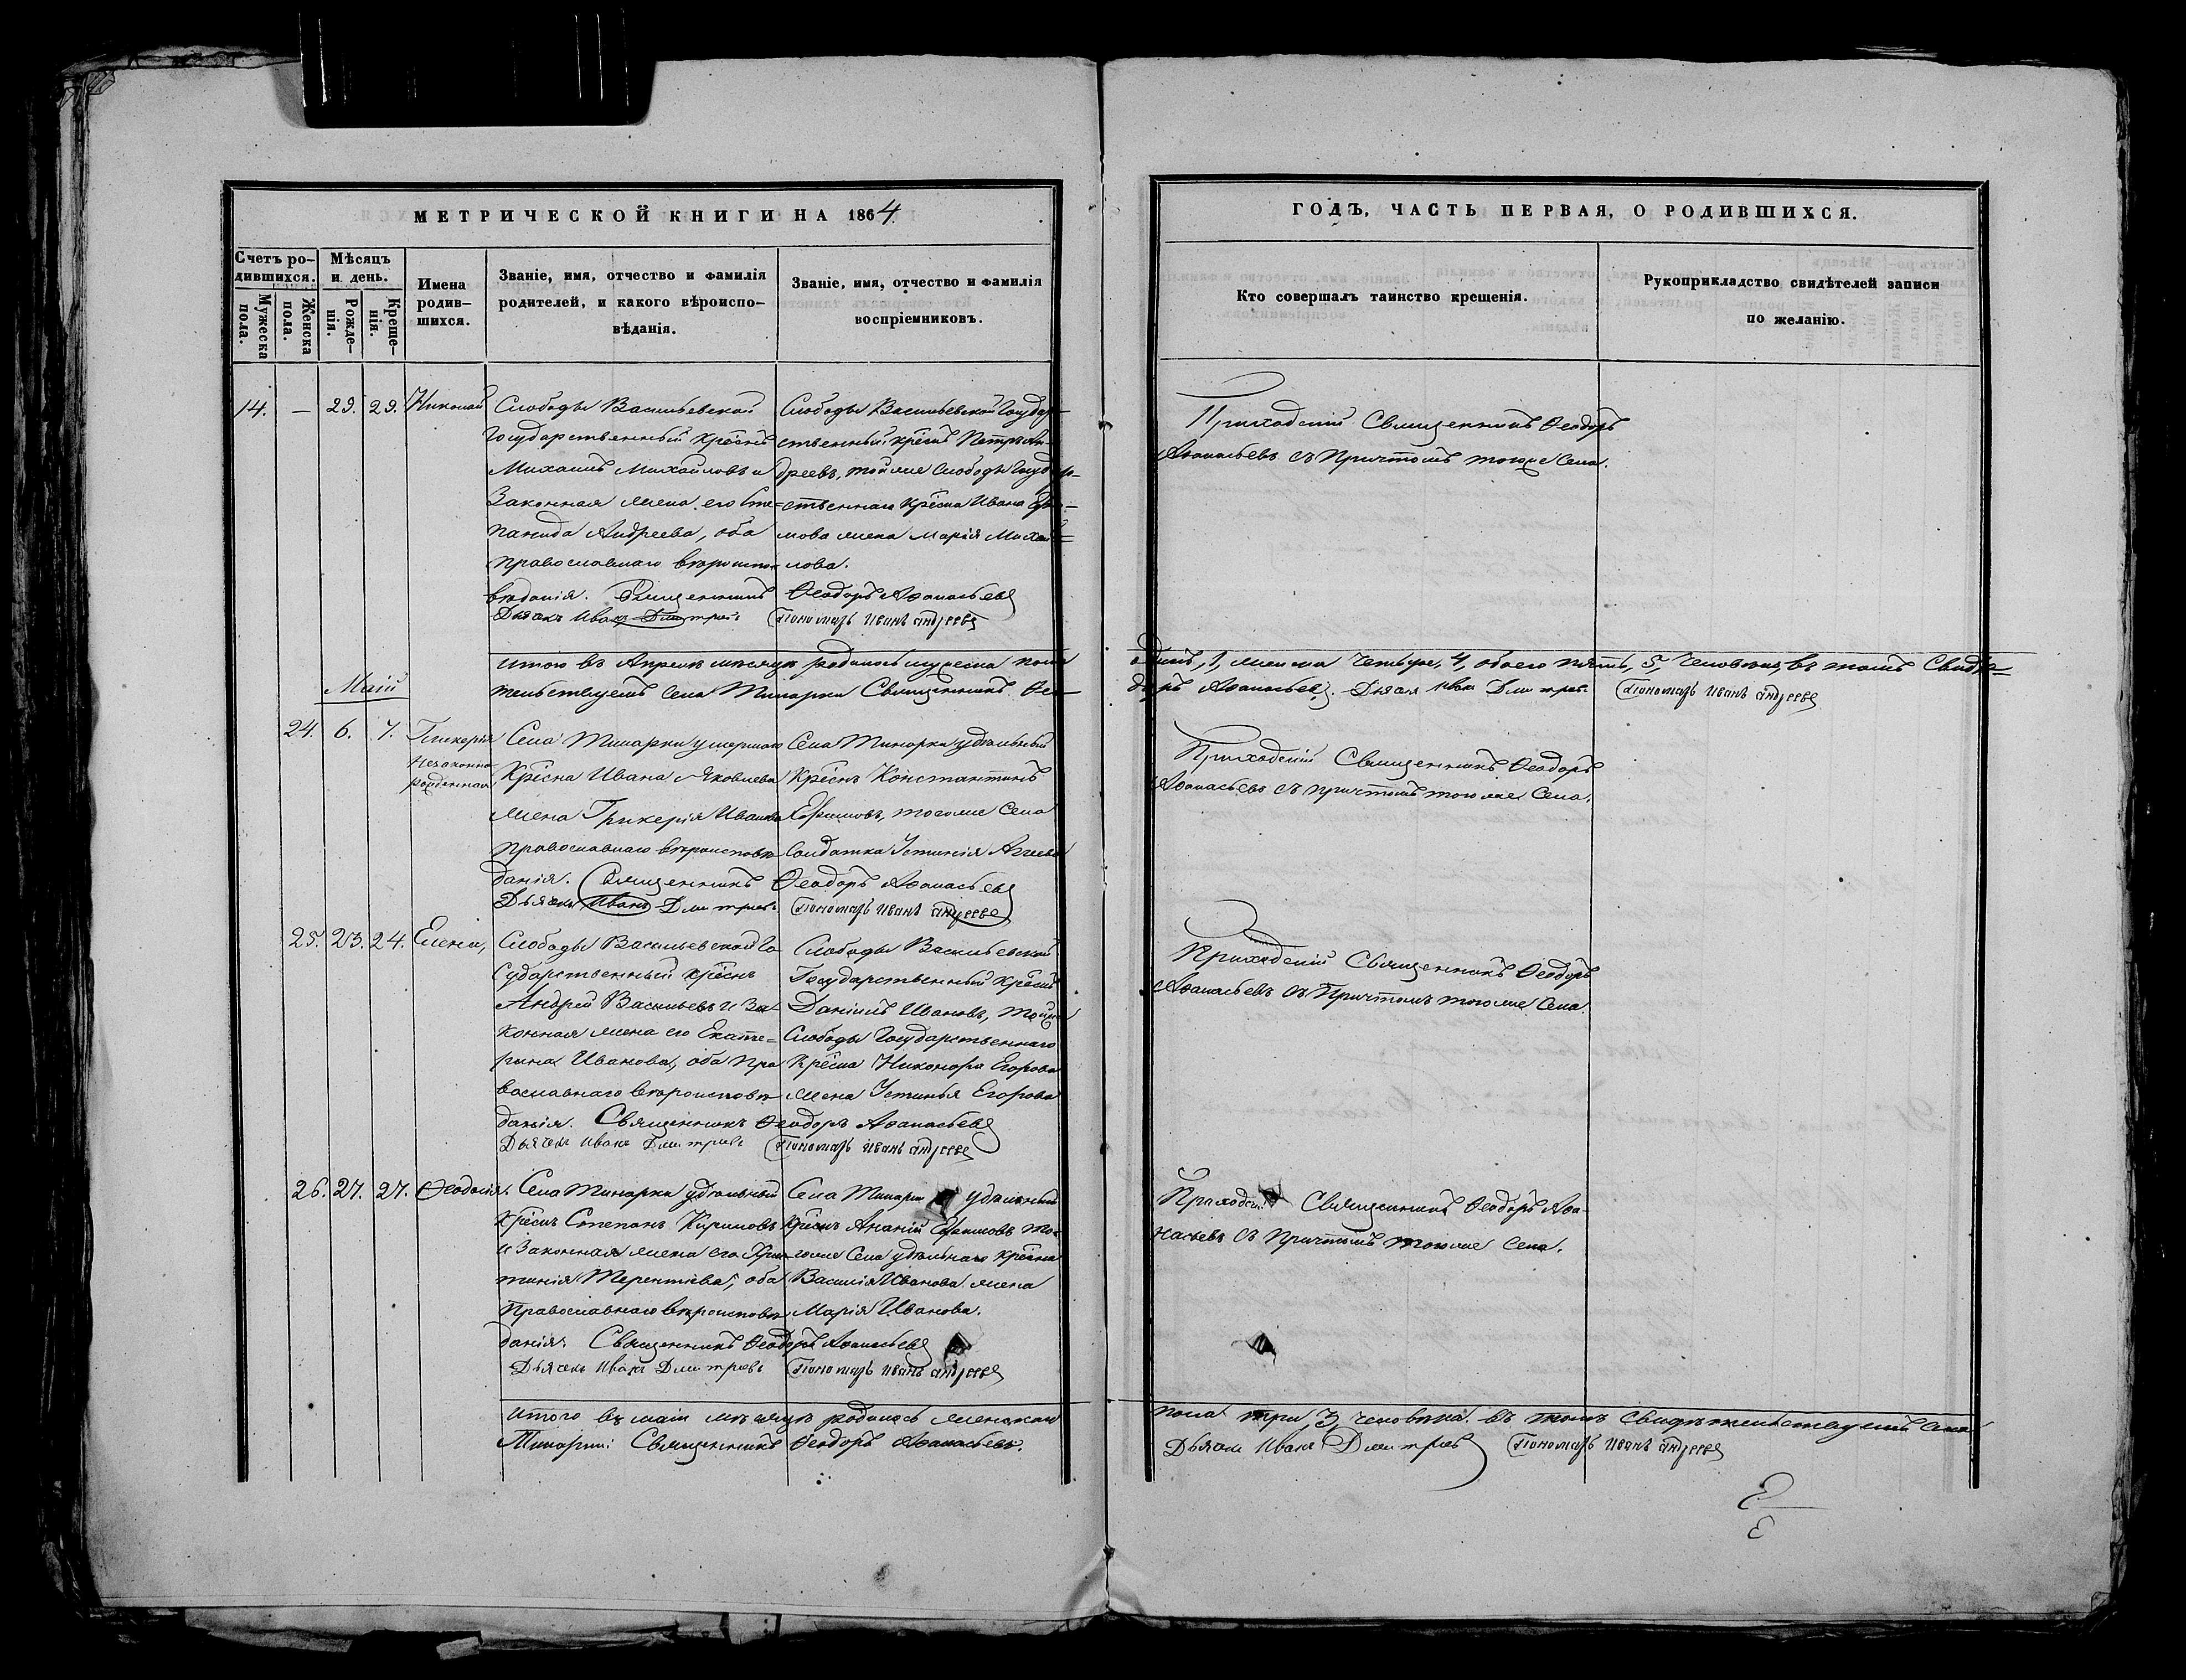 МЕТРИЧЕСКОЙ КНИГИ НА 1864
ГОДЪ, ЧАСТЬ ПЕРВАЯ, О РОДИВШИХСЯ.
Счетъ ро-
дившихся.
Мужеска
пола.
Женска
пола.
Мѣсяцъ
и день.
Рожде-
нія.
Креще-
нія.
Имена
родив-
шихся.
Званіе, имя, отчество и фамилія
родителей, и какого вѣроиспо-
вѣданія.
Званіе, имя, отчество и фамилія
воспріемниковъ.
Кто совершалъ таинство крещенія.
Рукоприкладство свидѣтелей записи
по желанію.
14. — 29. 29. Николай
Слободы Васильевской
Государственный крѣснъ
Михаилъ Михайловъ и
Законная жена его Сте=
панида Андреева, оба
православнаго вѣроиспо-
вѣданія. Священникъ Ѳеодоръ Аѳанасьевъ
Дьячекъ Иванъ Дмитріевъ Пономарь Иванъ Андреевъ
Слободы Васильевской Государ-
ственный крѣснъ Петръ Ан-
дреевъ, той же слободы Государ-
ственнаго крѣсна Ивана
мова жена Марія Михай=
лова.
Приходскій Священникъ Ѳеодоръ
Аѳанасьевъ съ Причтомъ тогоже Села.
Итого въ Апрелѣ мѣсяцѣ родилось мужеска пола
одинъ, 1, женска четыре, 4, обоего пять, 5, человекъ, въ томъ Свидѣ-
тельствуемъ Села Тинарки Священникъ Ѳео-
доръ Аѳанасьевъ. Дьячекъ Иванъ Дмитріевъ Пономарь Иванъ Андреевъ
Маій
24. 6. 7. Гликерія
незаконно
рожденная
Села Тинарки умершаго
Крѣсна Ивана Яковлева
жена Гликерія Иванова
православнаго вѣроисповѣ
данія. Священникъ Ѳеодоръ Аѳанасьевъ
Дьячекъ Иванъ Дмитріевъ Пономарь Иванъ Андреевъ
Села Тинарки удѣльный
Крѣснъ Константинъ
Ефимовъ, тогоже Села
Солдатка Устинія Агѣева
Приходскій Священникъ Ѳеодоръ
Аѳанасьевъ съ причтомъ тогоже Села.
25. 23. 24. Елена,
Слободы Васильевской Го
сударственный крѣснъ
Андрей Васильевъ и За-
конная жена его Екате=
рина Иванова, оба Пра
вославнаго вѣроисповѣ
данія. Священникъ Ѳеодоръ Аѳанасьевъ
Дьячекъ Иванъ Дмитріевъ Пономарь Иванъ Андреевъ
Слободы Васильевской
Государственный Крѣснъ
Даніилъ Ивановъ, тойже
Слободы Государственнаго
Крѣсна Никонора Егорова
жена Устинья Егорова
Приходскій Священникъ Ѳеодоръ
Аѳанасьевъ съ Причтомъ тогоже Села.
26. 27. 27. Ѳеодосія.
Села Тинарки удѣльный
Крѣснъ Степанъ Кириловъ
и Законная жена его Хри-
тинія Терентіева, оба
Православнаго вѣроисповѣ
данія. Священникъ Ѳеодоръ Аѳанасьевъ
Дьячекъ Иванъ Дмитріевъ Пономарь Иванъ Андреевъ
Села Тинарки удѣльный
Крѣснъ Ананій Ефимовъ то-
гоже Села удѣльнаго крѣсна
Василія Иванова жена
Марія Иванова.
Приходскій Священникъ Ѳеодоръ Аѳа-
насьевъ съ Причтомъ тогоже Села.
Итого въ маіи мѣсяцѣ родилось женскаго
пола три, 3, человека. въ томъ свидѣтельствуемъ Села
Тинарки: Священникъ Ѳеодоръ Аѳанасьевъ.
Дьячекъ Иванъ Дмитріевъ Пономарь Иванъ Андреевъ